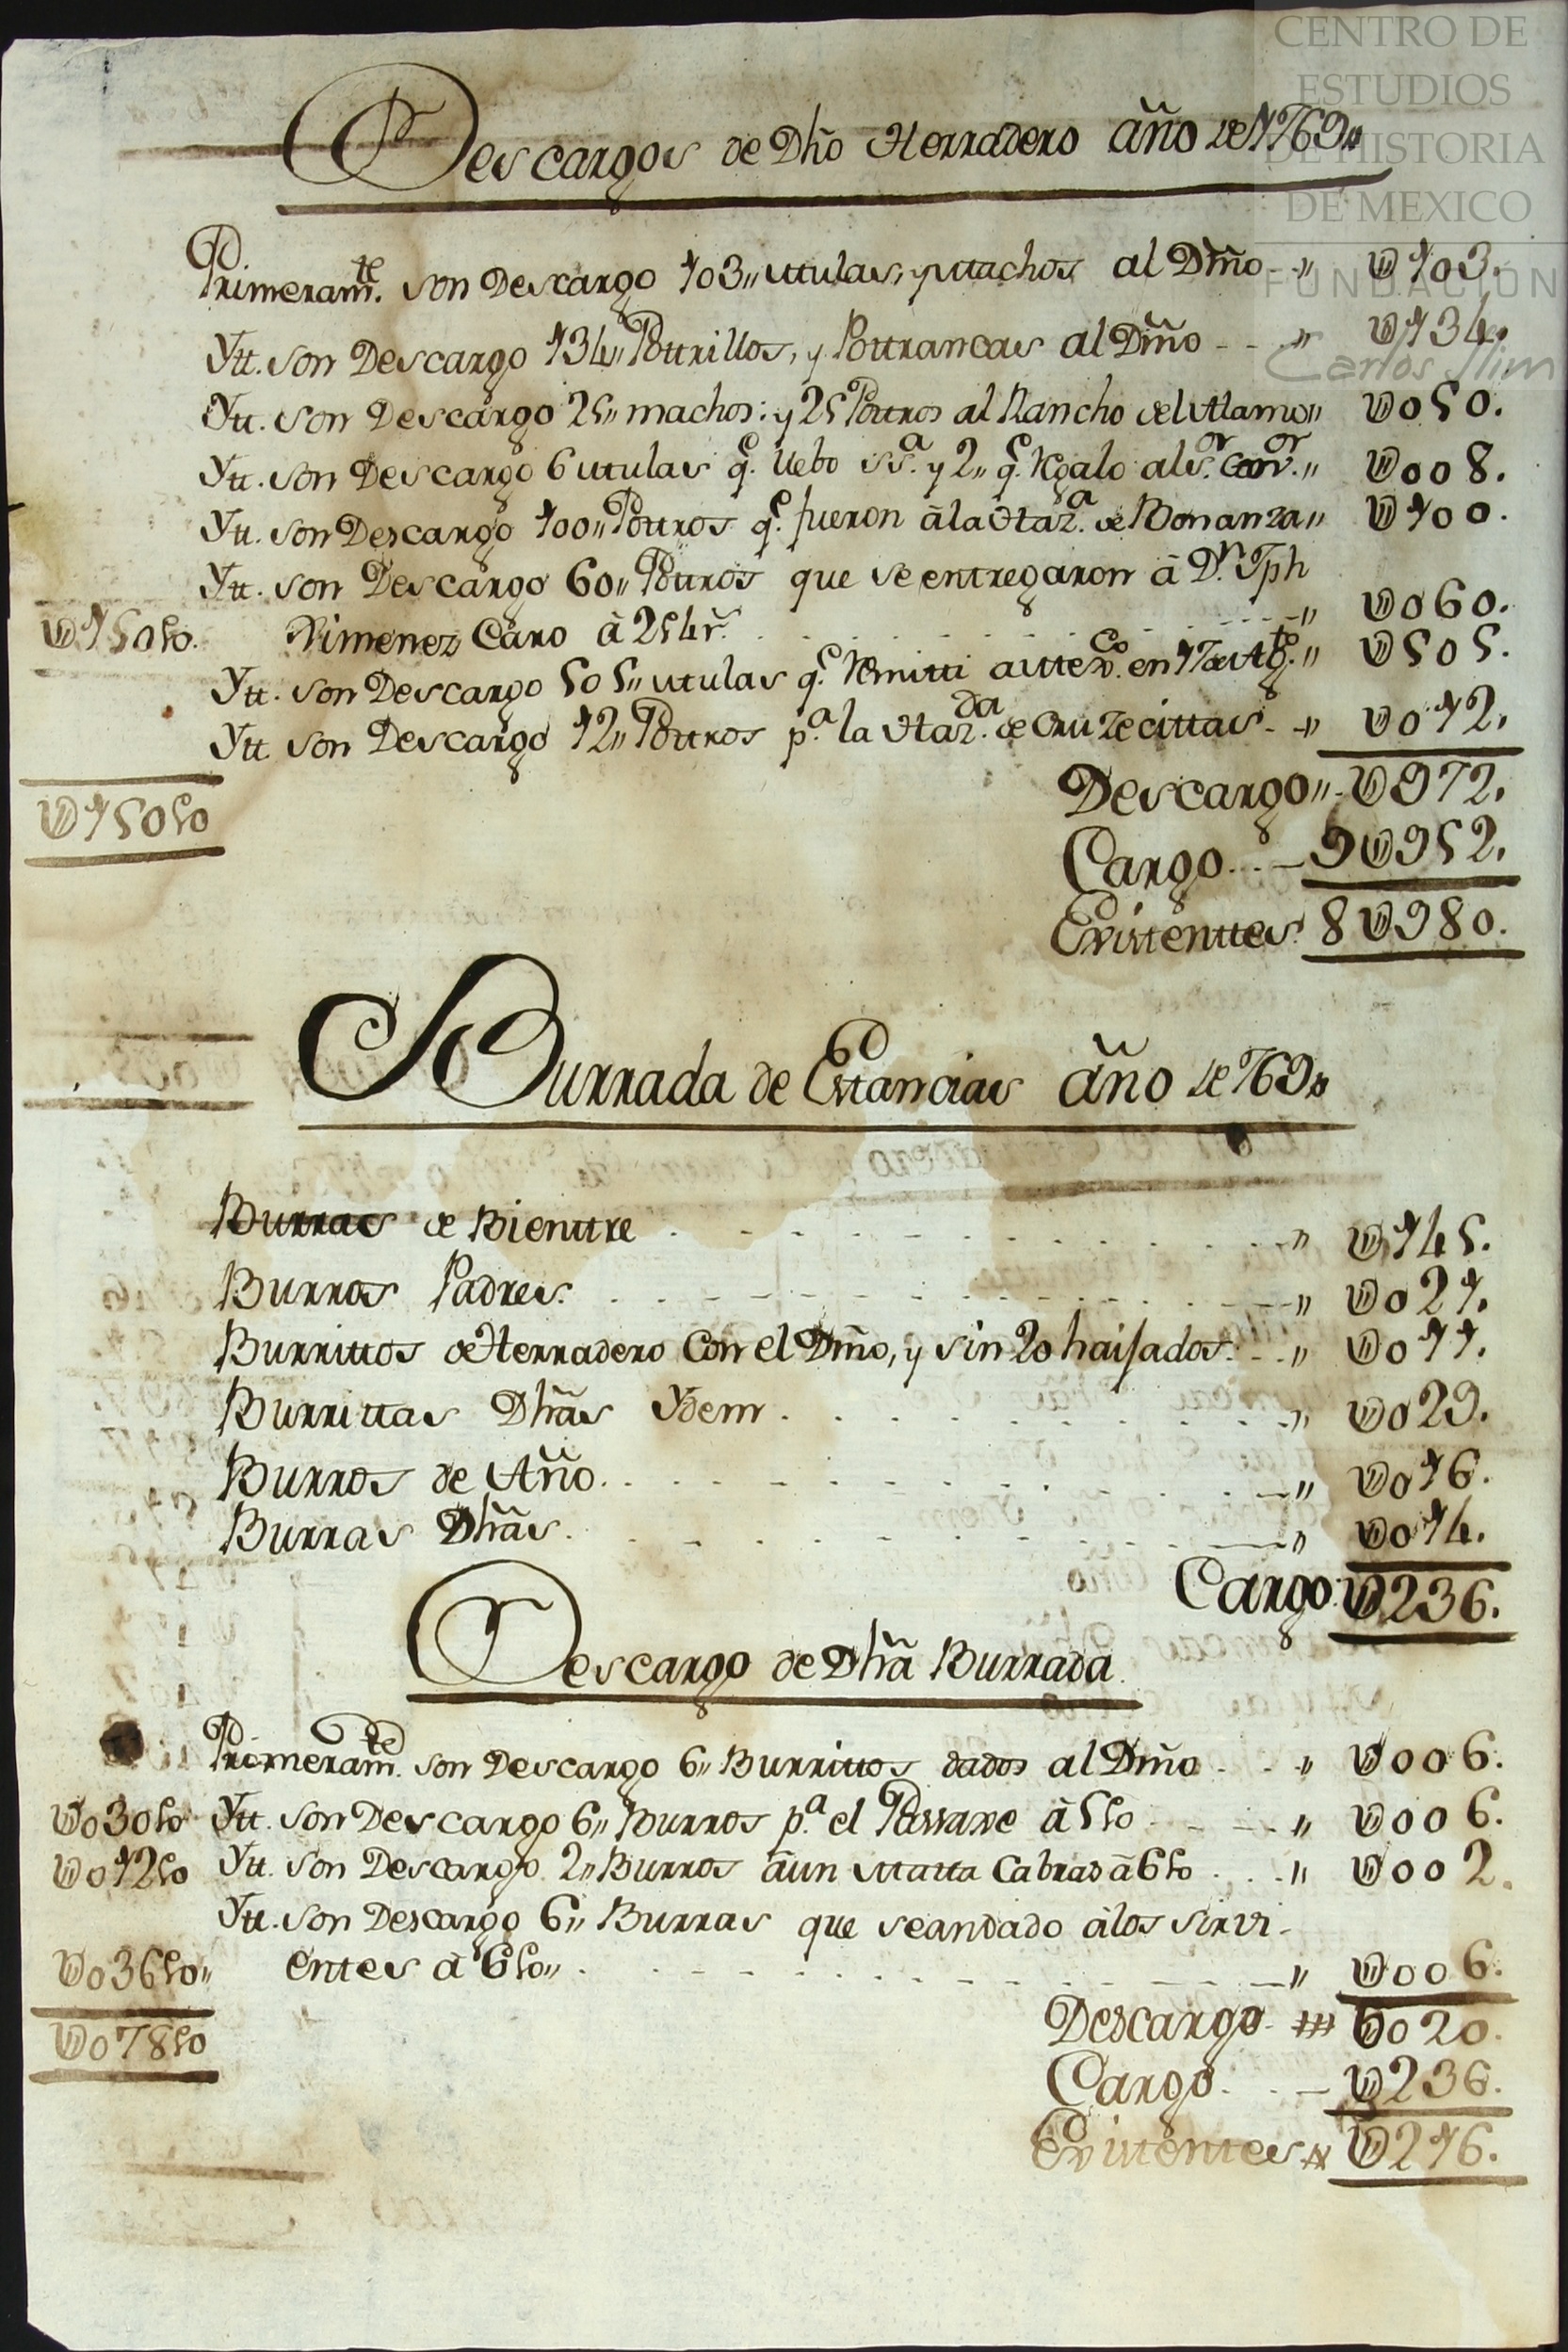 CENTRO DE
ESTUDIOS
DE HISTORIA
DE MEXICO
FUNDACIÓN
Carlos Slim
Descargos de Dho Herradero año de 1769,,
Primeramte. son Descargo 103,, Mulas, y Machos al Dmo - ,, U103.
Ytt. son Descargo 134,, Pottrillos, y Pottrancas al Dmo - - ,, U134.
Ytt. son Descargo 25,, machos: y 25 Pottros al Rancho del Alamo,, U050.
Ytt. son Descargo 6 Mulas qe. llebo Sa. y 2,, qe. Regalo al Sr. ,, U008.
Ytt. son Descargo 100,, Pottros qe. fueron â la Haza. de Bonanza,, U100.
Ytt. son Descargo 60,, Pottros que se entregaron â Dn. Jph
U150p0. Ximenez Caro â 2p4r. ,, U060.
Ytt. son Descargo 505,, Mulas qe. Remitti a Mexco. en 17 de Agte. ,, U505.
Ytt. son Descargo 12,, Pottros pa. la Hazda. de Cruzecittas - ,, U012.
U150p0
Descargo,, - U972.
Cargo - 9U952.
Existenttes 8U980.
Burrada de Estancias año de 769,,
Burras de Bienttre ,, U145.
Burros Padres. ,, U021.
Burrittos de Herradero Con el Dmo, y sin 20 haisados. ,, U011.
Burrittas Dhas Ydem ,, U029.
Burros de Año. ,, U016.
Burras Dhas. ,, U014.
Cargo U236.
Descargo de Dha Burrada
Primeramte. son Descargo 6,, Burrittos dados al Dmo ,, U006.
U030p0 Ytt. son Descargo 6,, Burros pa. el Passaxe â 5p0 ,, U006.
U012p0 Ytt. son Descargo 2,, Burros â un Matta Cabras â 6p0 ,, U002.
Ytt. son Descargo 6,, Burras que se an dado â los sirvi-
U036p0,, entes â 6p0,, ,, U006.
U078p0
Descargo U020.
Cargo - U236.
Existentes U216.